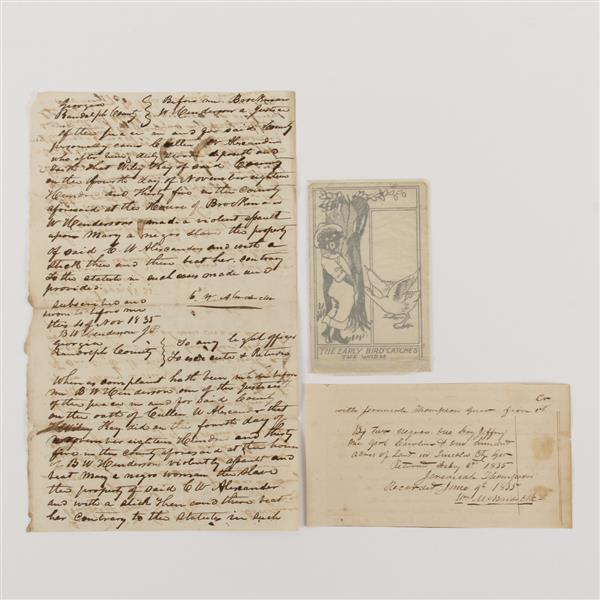 Georgia } Before me Brockman
Randolph County } W. Henderson a Justice
of the peace in and for said County
personally came Cullen W Alexander
who after being duly sworn deposeth and
saith that Wiley Hay of said County
on the fourth day of November eighteen
Hundred and thirty five in the County
aforesaid at the House of Brockman
W Hendersons made a violent assault
upon Mary a negro slave the property
of said C. W. Alexander and with a
stick then and there beat her contrary
to the statute in such cases made and
provided.
C. W. Alexander
subscribed and
sworn to before me
this 4 of Nov 1835
B W Henderson J.P.
Georgia } To any legal officer
Randolph County } To execute & Return
Whereas complaint hath been made before
me B. W. Henderson one of the Justices
of the peace in and for said County
on the oath of Cullen W Alexander that
Wiley Hay did on the fourth day of
November eighteen Hundred and thirty
five in the county aforesaid at the house
of B W Henderson violently assault and
beat Mary a negro woman slave
the property of said C W Alexander
and with a stick then and there beat
her contrary to the Statute in such
THE EARLY BIRD CATCHES
THE WORM
Cr
with Jeremiah Thompson
By two negroes one boy
one girl Caroline & one hundred
acres of Land in Lincoln Cty
1835
Jeremiah Thompson
Recorded June 9th 1835